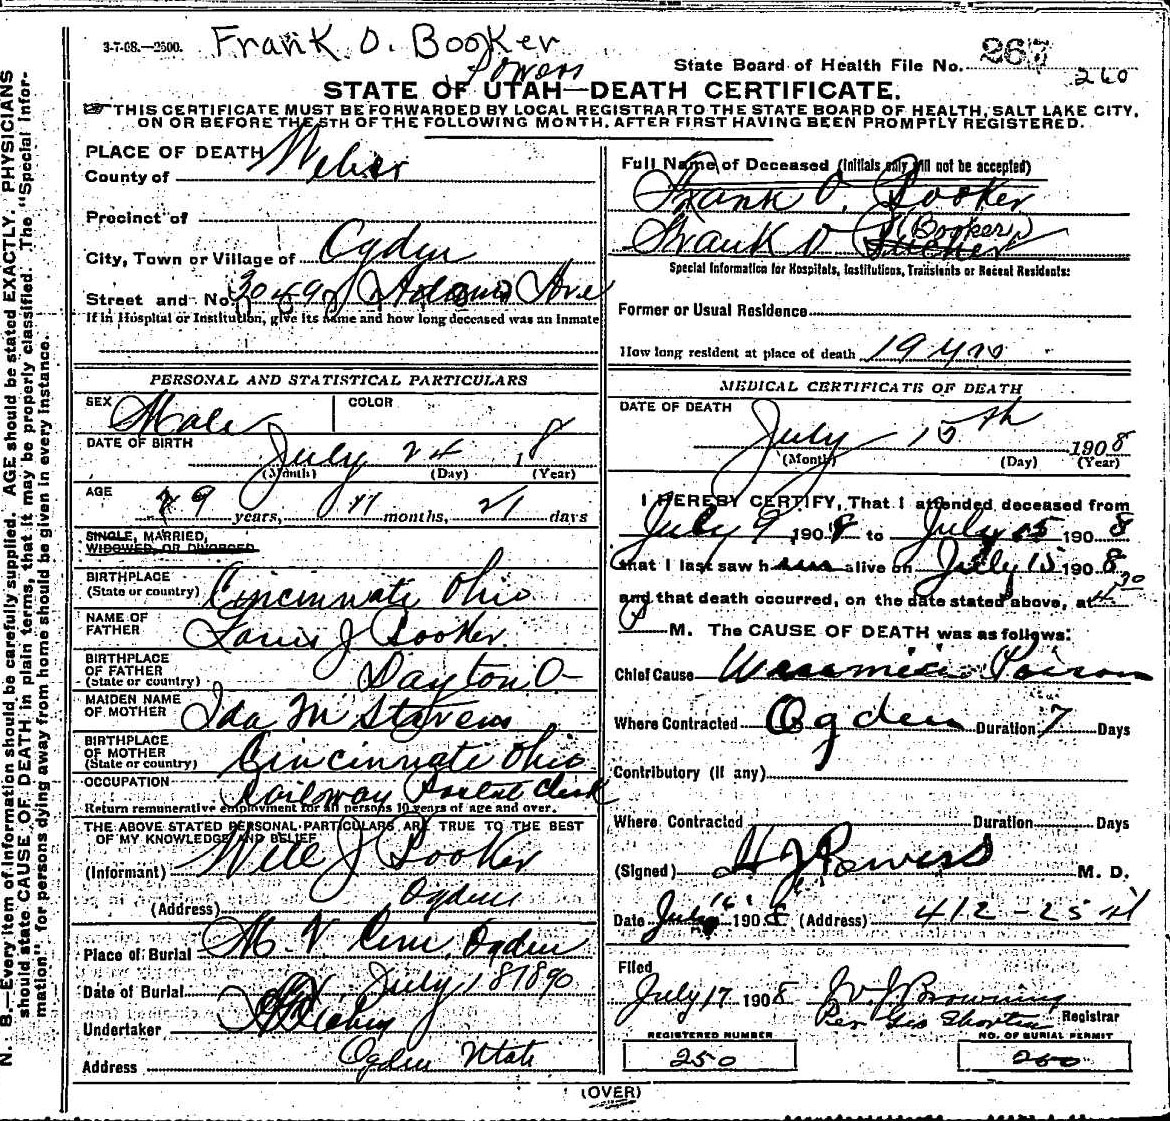 3-7-08.—2500.
Frank O. Booker
Powers
State Board of Health File No. 267
260
STATE OF UTAH—DEATH CERTIFICATE.
THIS CERTIFICATE MUST BE FORWARDED BY LOCAL REGISTRAR TO THE STATE BOARD OF HEALTH, SALT LAKE CITY,
ON OR BEFORE THE 5TH OF THE FOLLOWING MONTH, AFTER FIRST HAVING BEEN PROMPTLY REGISTERED.
PLACE OF DEATH
County of Weber
Precinct of
City, Town or Village of Ogden
Street and No. 3049 Adams Ave
If in Hospital or Institution, give its name and how long deceased was an Inmate
PERSONAL AND STATISTICAL PARTICULARS
SEX Male COLOR
DATE OF BIRTH
July 24 18
(Month) (Day) (Year)
AGE
29 years, 11 months, 21 days
SINGLE, MARRIED,
WIDOWED, OR DIVORCED
BIRTHPLACE
(State or country) Cincinnate Ohio
NAME OF
FATHER Louis J Booker
BIRTHPLACE
OF FATHER
(State or country) Dayton O—
MAIDEN NAME
OF MOTHER Ida M Stevens
BIRTHPLACE
OF MOTHER
(State or country) Cincinnate Ohio
OCCUPATION Railway Postal Clerk
Return remunerative employment for all persons 10 years of age and over.
THE ABOVE STATED PERSONAL PARTICULARS ARE TRUE TO THE BEST
OF MY KNOWLEDGE AND BELIEF
(Informant) Will J Booker
(Address) Ogden
Place of Burial M. V. Cem, Ogden
Date of Burial July 18 1890
Undertaker
Address Ogden Utah
Full Name of Deceased (Initials only will not be accepted)
Frank O. Booker
Frank O (Booker)
Special Information for Hospitals, Institutions, Transients or Recent Residents:
Former or Usual Residence
How long resident at place of death 19 yrs
MEDICAL CERTIFICATE OF DEATH
DATE OF DEATH
July 15th 1908
(Month) (Day) (Year)
I HEREBY CERTIFY, That I attended deceased from
July 9 1908 to July 15 1908
that I last saw him alive on July 15 1908
and that death occurred, on the date stated above, at 4 30
P M. The CAUSE OF DEATH was as follows:
Chief Cause Uraemic Poison
Where Contracted Ogden Duration 7 Days
Contributory (If any)
Where Contracted Duration Days
(Signed) H J Powers M. D.
Date July 16 1908 (Address) 412-25 st
Filed
July 17 1908 W J Browning
Per Geo Shorten Registrar
REGISTERED NUMBER
250
NO. OF BURIAL PERMIT
260
(OVER)
N. B.—Every item of information should be carefully supplied. AGE should be stated EXACTLY. PHYSICIANS
should state CAUSE OF DEATH in plain terms, that it may be properly classified. The "Special Infor-
mation" for persons dying away from home should be given in every instance.